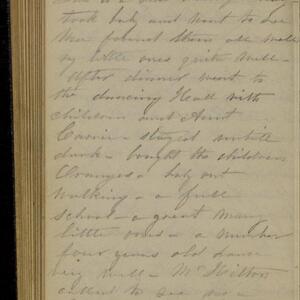 took baby and went to see
found them all well
my little ones quite well -
After dinner went to
the dancing Hall with
children and Aunt
Carrie - stayed until
dark - bought the children
Oranges - baby out
walking - a full
school - a great many
little ones - a number
four years old
very well - Mr Hilton
called to see